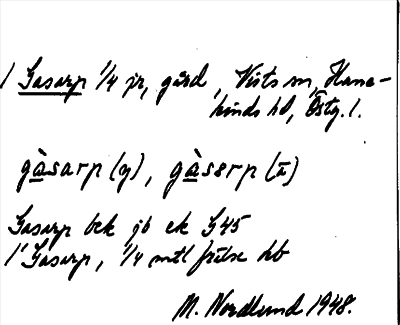 1 Gasarp 1/4 jr, gård, Vists sn, Hane-
kinds hd, Östg. l.
gàsarp (y), gàsɛrp (ä)
Gasarp bek jb ek G45
1 Gasarp, 1/4 mtl frälse hb
M. Nordlund 1948.